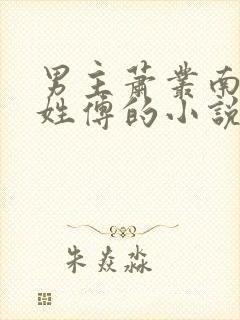 男主蕭業南
姓傅的小說
朱焱淼